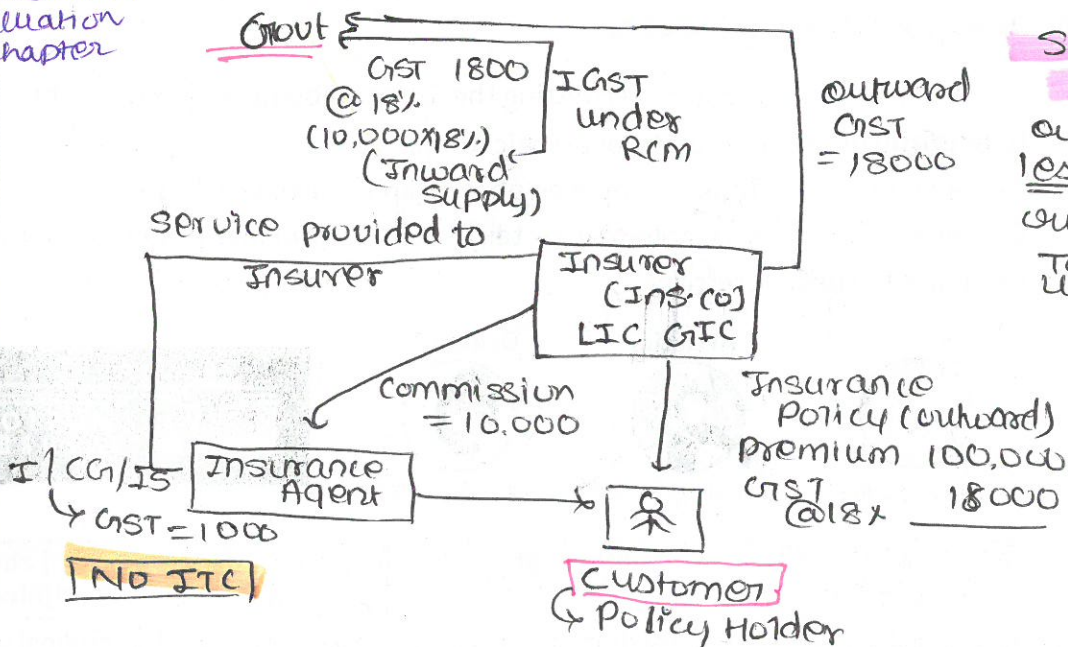 hapter
Govt
GST 1800
@ 18%
(10,000X18%)
(Inward
Supply)
IGST
under
RCM
outward
GST
= 18000
S
Service provided to
Insurer
Insurer
(Ins. co)
LIC GIC
Commission
= 10.000
Insurance
Policy (outward)
Premium 100,000
GST 18000
@18%
I/CG/IS
GST = 1000
NO ITC
Insurance
Agent
Customer
Policy Holder